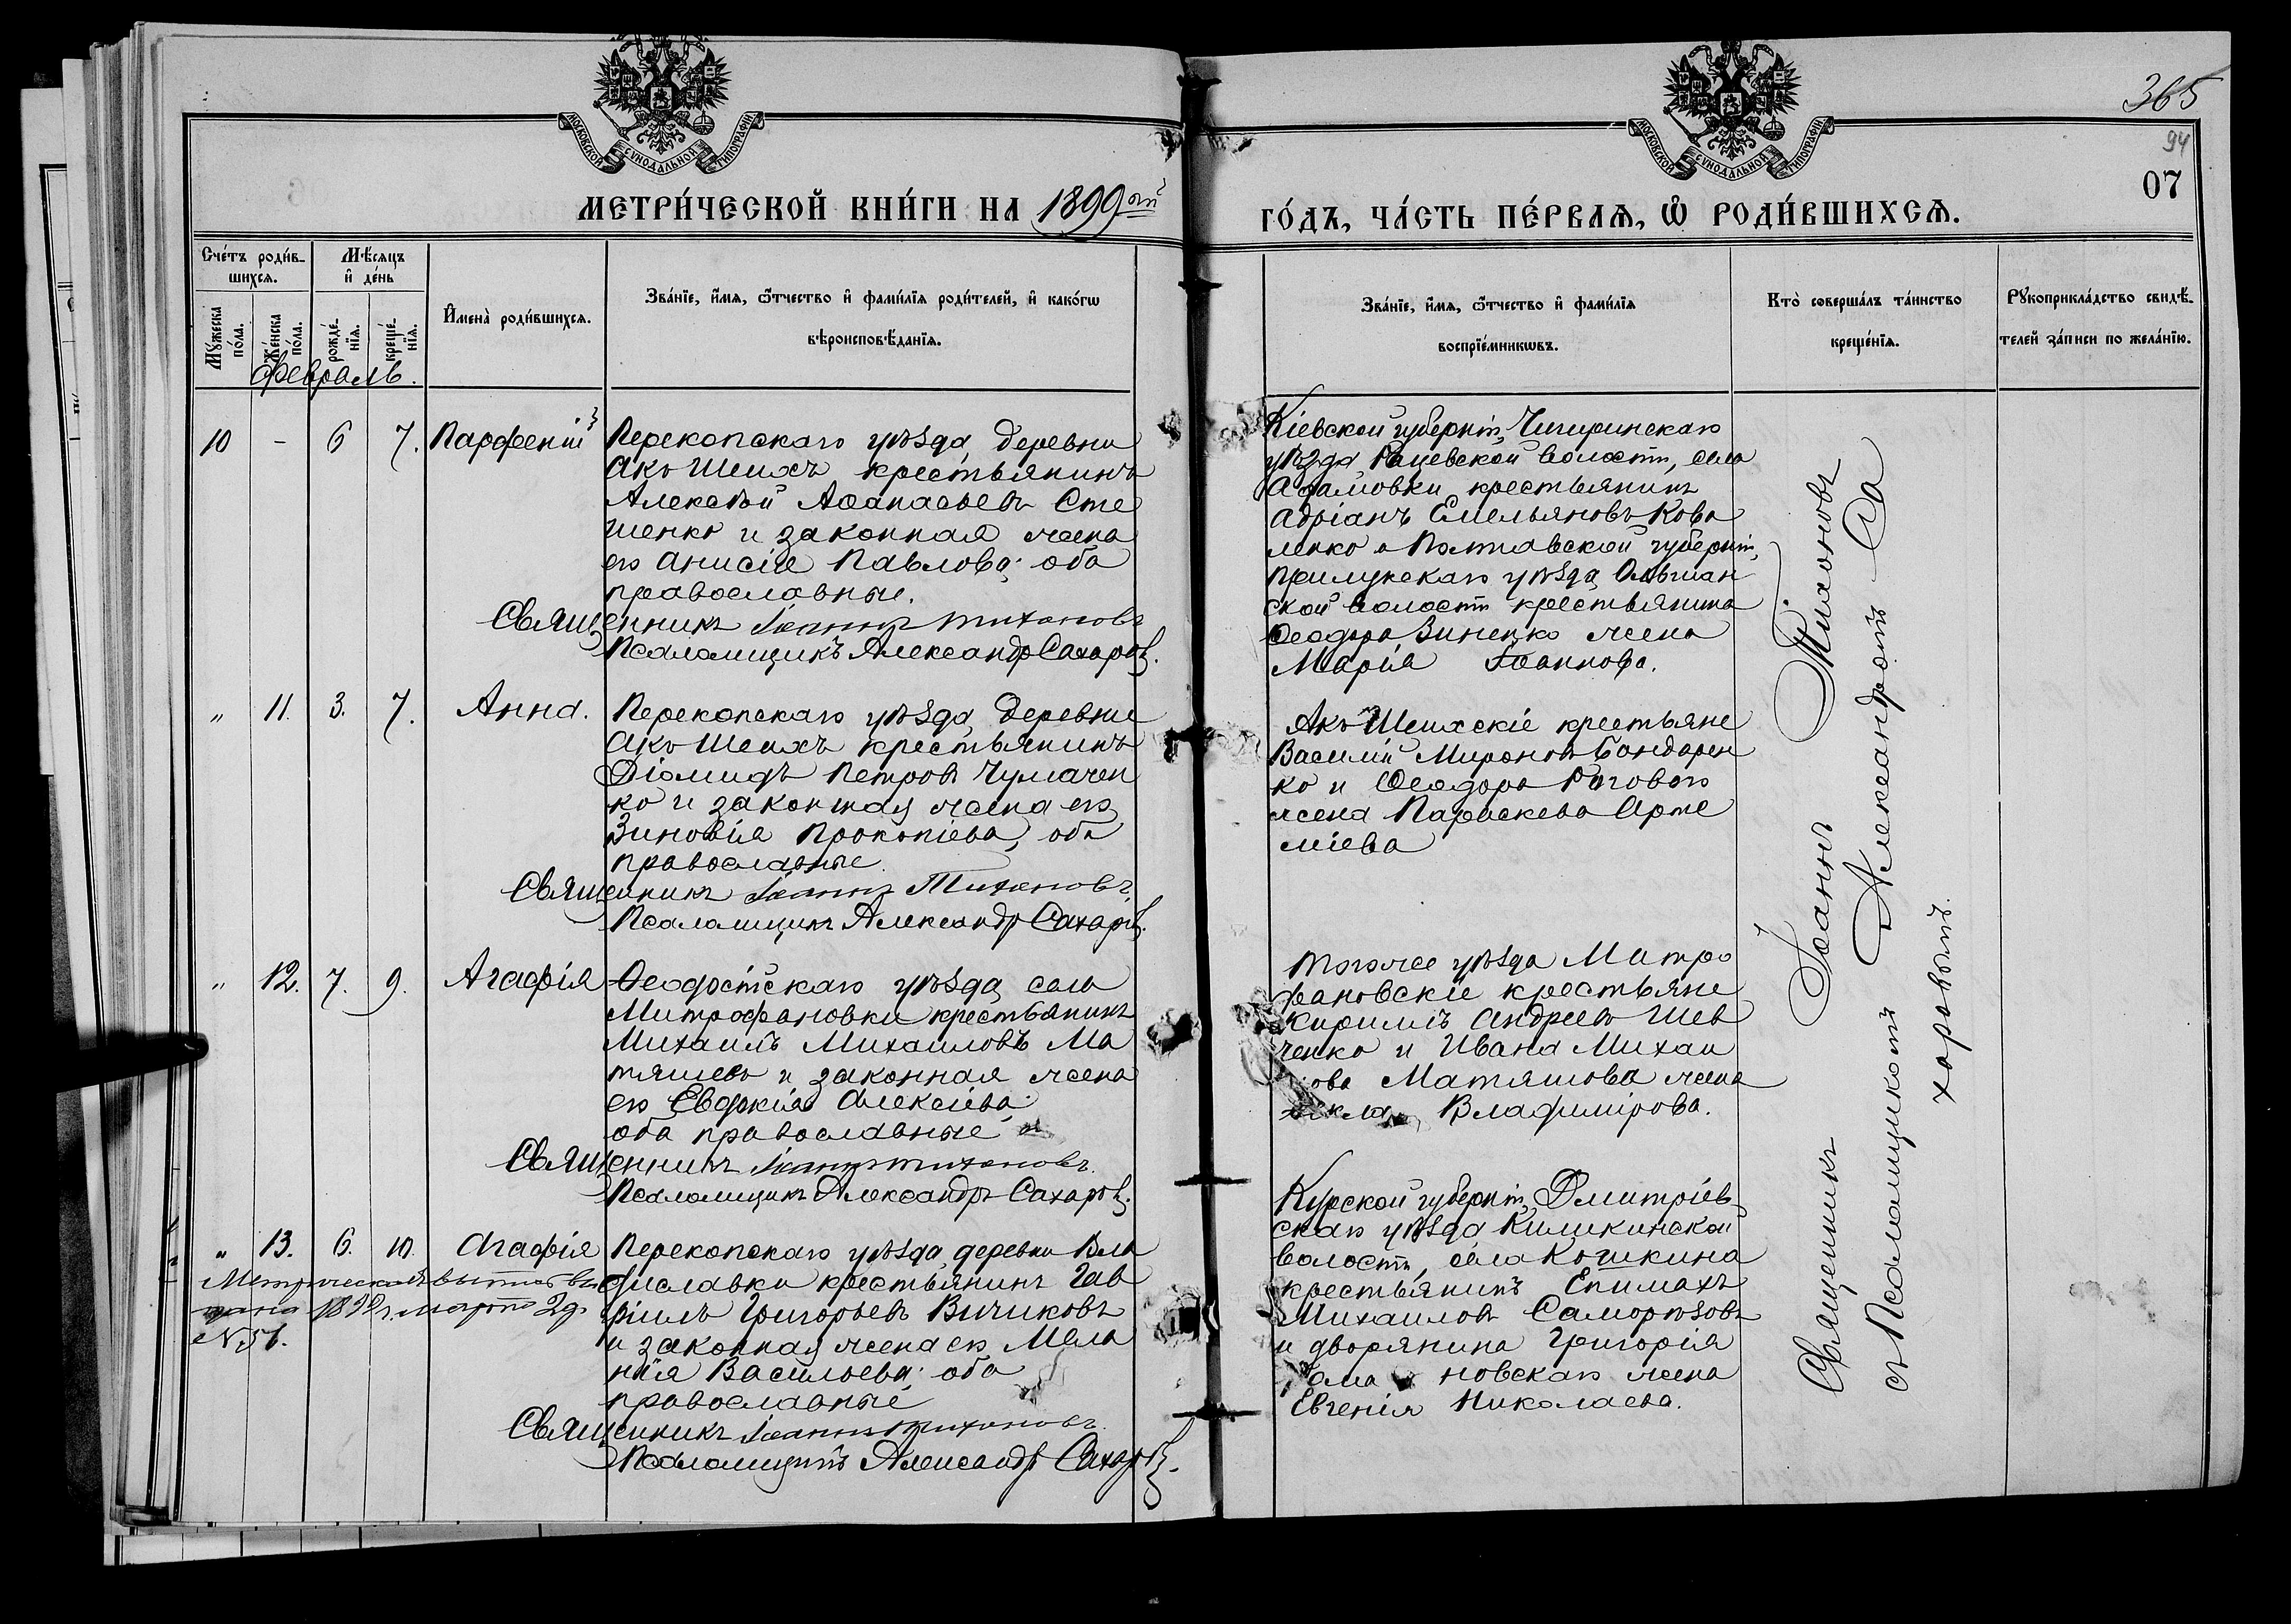 365
94
07
МОСКОВСКОЙ СѴНОДАЛЬНОЙ ТИПОГРАФІИ
МОСКОВСКОЙ СѴНОДАЛЬНОЙ ТИПОГРАФІИ
МЕТРИ́ЧЕСКОЙ КНИ́ГИ НА 1899ый
ГО́ДЪ, ЧА́СТЬ ПЕ́РВАѦ, Ѽ РОДИ́ВШИХСѦ.
Сче́тъ роди́вшихсѧ.
Мꙋ́жеска по́ла.
Же́нска по́ла.
Мѣ́сяцъ и҆ де́нь
рожде́нїѧ.
креще́нїѧ.
И҆мена̀ роди́вшихсѧ.
Зва́нїе, и҆́мѧ, ѻ҆́тчество и҆ фами́лїѧ роди́телей, и҆ како́гѡ
вѣроисповѣ́данїѧ.
Зва́нїе, и҆́мѧ, ѻ҆́тчество и҆ фами́лїѧ
воспрїе́мникѡвъ.
Кто̀ соверша́лъ та́инство
креще́нїѧ.
Рꙋкоприкла́дство свидѣ́-
телей за́писи по жела́нїю.
Февраль.
10 - 6 7. Парфеній
Перекопскаго уѣзда, деревни
Акъ Шеихъ крестьянинъ
Алексѣй Аѳанасьевъ Сте
шенко и законная жена
его Анисія Павлова; оба
православные.
Священникъ Іоаннъ Тихоновъ
Псаломщикъ Александръ Сахаровъ.
Кіевской губерніи, Чигиринскаго
уѣзда, Рацевской волости, села
Адамовки крестьянинъ
Адріанъ Емельяновъ Кова
ленко и Полтавской губерніи,
Прилукскаго уѣзда, Ольшан
ской волости крестьянина
Ѳеодора Зиненко жена
Марія Іоаннова.
„ 11. 3. 7. Анна.
Перекопскаго уѣзда, деревни
Акъ Шеихъ крестьянинъ
Діомидъ Петровъ Чумачен
ко и законная жена его
Зиновія Прокопіева, оба
православные.
Священникъ Іоаннъ Тихоновъ
Псаломщикъ Александръ Сахаровъ.
Акъ Шеихскіе крестьяне
Василій Мироновъ Бондарен
ко и Ѳеодора Рогового
жена Параскева Арте
міева
„ 12. 7. 9. Агафія
Ѳеодосійскаго уѣзда села
Митрофановки крестьянинъ
Михаилъ Михаиловъ Ма
тяшевъ и законная жена
его Евдокія Алексіева;
оба православные
Священникъ Іоаннъ Тихоновъ.
Псаломщикъ Александръ Сахаровъ.
Тогоже уѣзда Митро
фановскіе крестьяне
Кириллъ Андреевъ Шев
ченко и Ивана Михаи
лова Матяшова жена
Ѳекла Владимірова.
„ 13. 6. 10. Агафія
Перекопскаго уѣзда, деревни Вла
диславки крестьянинъ Гав
ріилъ Григорьевъ Вичиковъ
и законная жена его Мела
нія Васильева; оба
православные
Священникъ Іоаннъ Тихоновъ.
Псаломщикъ Александръ Сахаровъ.
1899 г. марта 2 д.
Курской губерніи, Дмитріев-
скаго уѣзда
волости, села Кошкина
крестьянинъ Епимахъ
Михаиловъ Саморѣзовъ
и дворянина Григорія
новскаго жена
Евгенія Николаева.
Священникъ Іоаннъ Тихоновъ
съ Псаломщикомъ Александромъ Са
харовымъ.